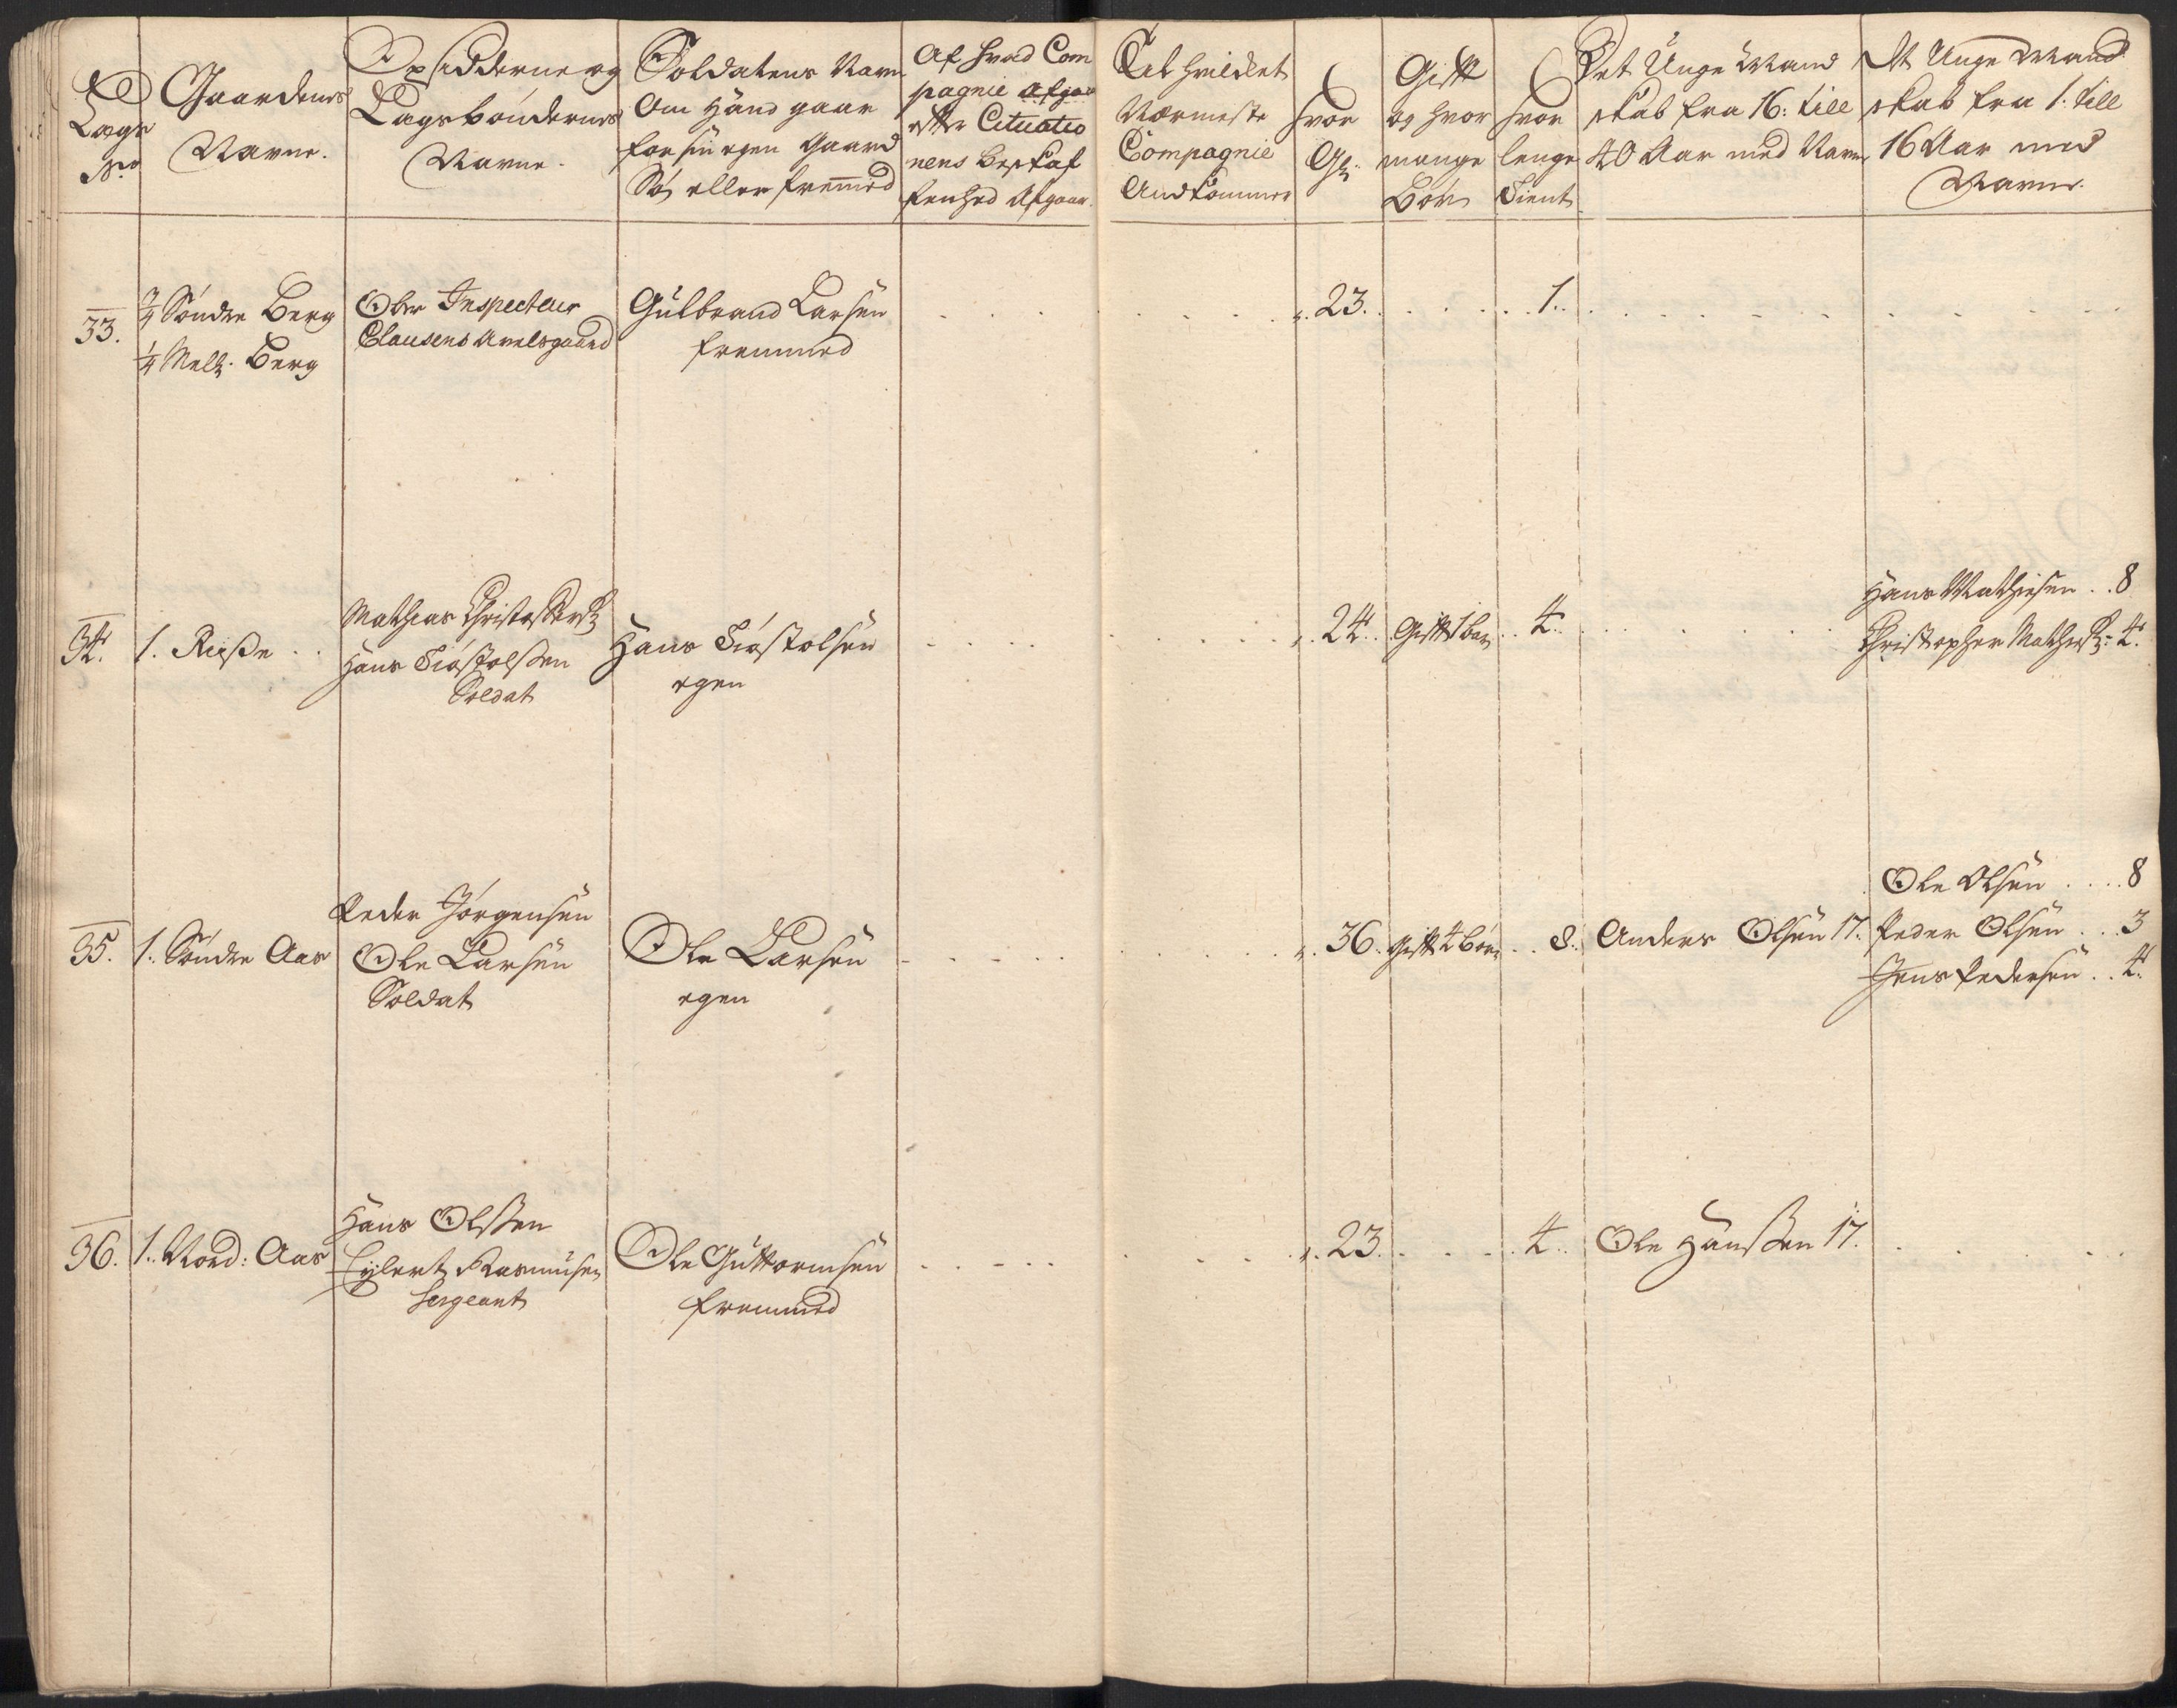 Lægs
No
Gaardens
Navne.
Opsidderne og
Lægsbøndernes
Navne.
Soldatens Navn
Om Hand gaar
for sin egen Gaard
Sø, eller fremmed
Af hvad Com
pagnie afgaar
efter Cituatio
nens Beskaf
fenhed Afgaar.
Till hvilcket
Nærmeste
Compagnie
And kommer
hvor
Gl:
Gift
og hvor
mange
Børn
hvor
lenge
tient
Det Unge Mand
skab fra 16: till
40 Aar med Navn
Dt Unge Mand
skab fra 1: till
16 Aar med
Navne.
33.
3/4 Søndre Berg
1/4 Mell: Berg
Ober Inspecteur
Clausens Avelsgaard
Gulbrand Larsen
fremmed
23.
1.
34.
1. Riisse
Mathias Christophers:
Hans Siøstolssen
Soldat
Hans Siøstolsen
egen
24.
Gift 1 barn
4.
Hans Mathiesen . . 8
Christopher Mathies: 4.
35.
1. Søndre Aas
Peder Jørgensen
Ole Larsen
Soldat
Ole Larsen
egen
36.
Gift 4 børn
8.
Anders Olsen 17.
Ole Olsen . . . . 8
Peder Olsen . . . 3
Jens Pedersen . . 4.
36.
1. Nord: Aas
Hans Olssen
Eylert Rasmusen
Sergeant
Ole Guttormsen
fremmed
23.
4.
Ole Hanssen 17.